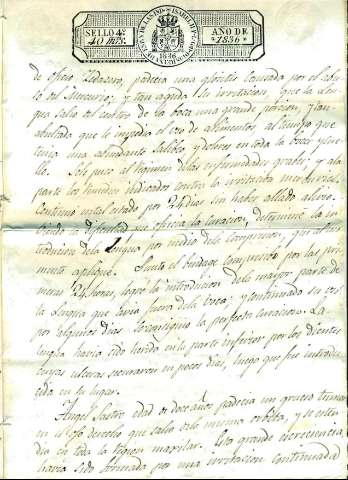 SELLO 4º
40 MRS.
AÑO DE
1836
1836
de oficio Pedazero, padecia una glositis causada por el abu-
so del mercurio; y tan aguda su irritacion, que la Len-
gua salio del centro de la boca una grande porcion, y tan
abultada que le impedia el uso de alimentos al tiempo que
tenia una abundante saliba y dolores en toda la boca y cue-
llo. Sele puso al regimen de las enfermedades grabes, y ala
parte los remedios indicados contra la irritacion mercurial.
Continuo en tal estado por 24 dias sin haber allado alivio.
Viendo la dificultad que ofrecia la curacion, determine la in-
troduccion dela Lengua por medio dela compresion, que al mo-
mento aplique. Junto el bindage compresibo por las pri-
meras 24 horas, logró la introduccion dela mayor parte de
la Lengua que havia fuera dela boca; y continuado su uso
por algunos dias se consiguio la perfecta curacion. La
lengua havia sido herida en su parte inferior por los dientes
cuyas ulceras se curaron en pocos dias, luego que fue introdu-
cida en su lugar.
Angel Sastre edad de doce años padecia un grueso tumor
en el ojo derecho que salia dela misma orbita, y se esten-
dia en toda la region maxilar. Esta grande escrecencia
havia sido formada por una irritacion continuada